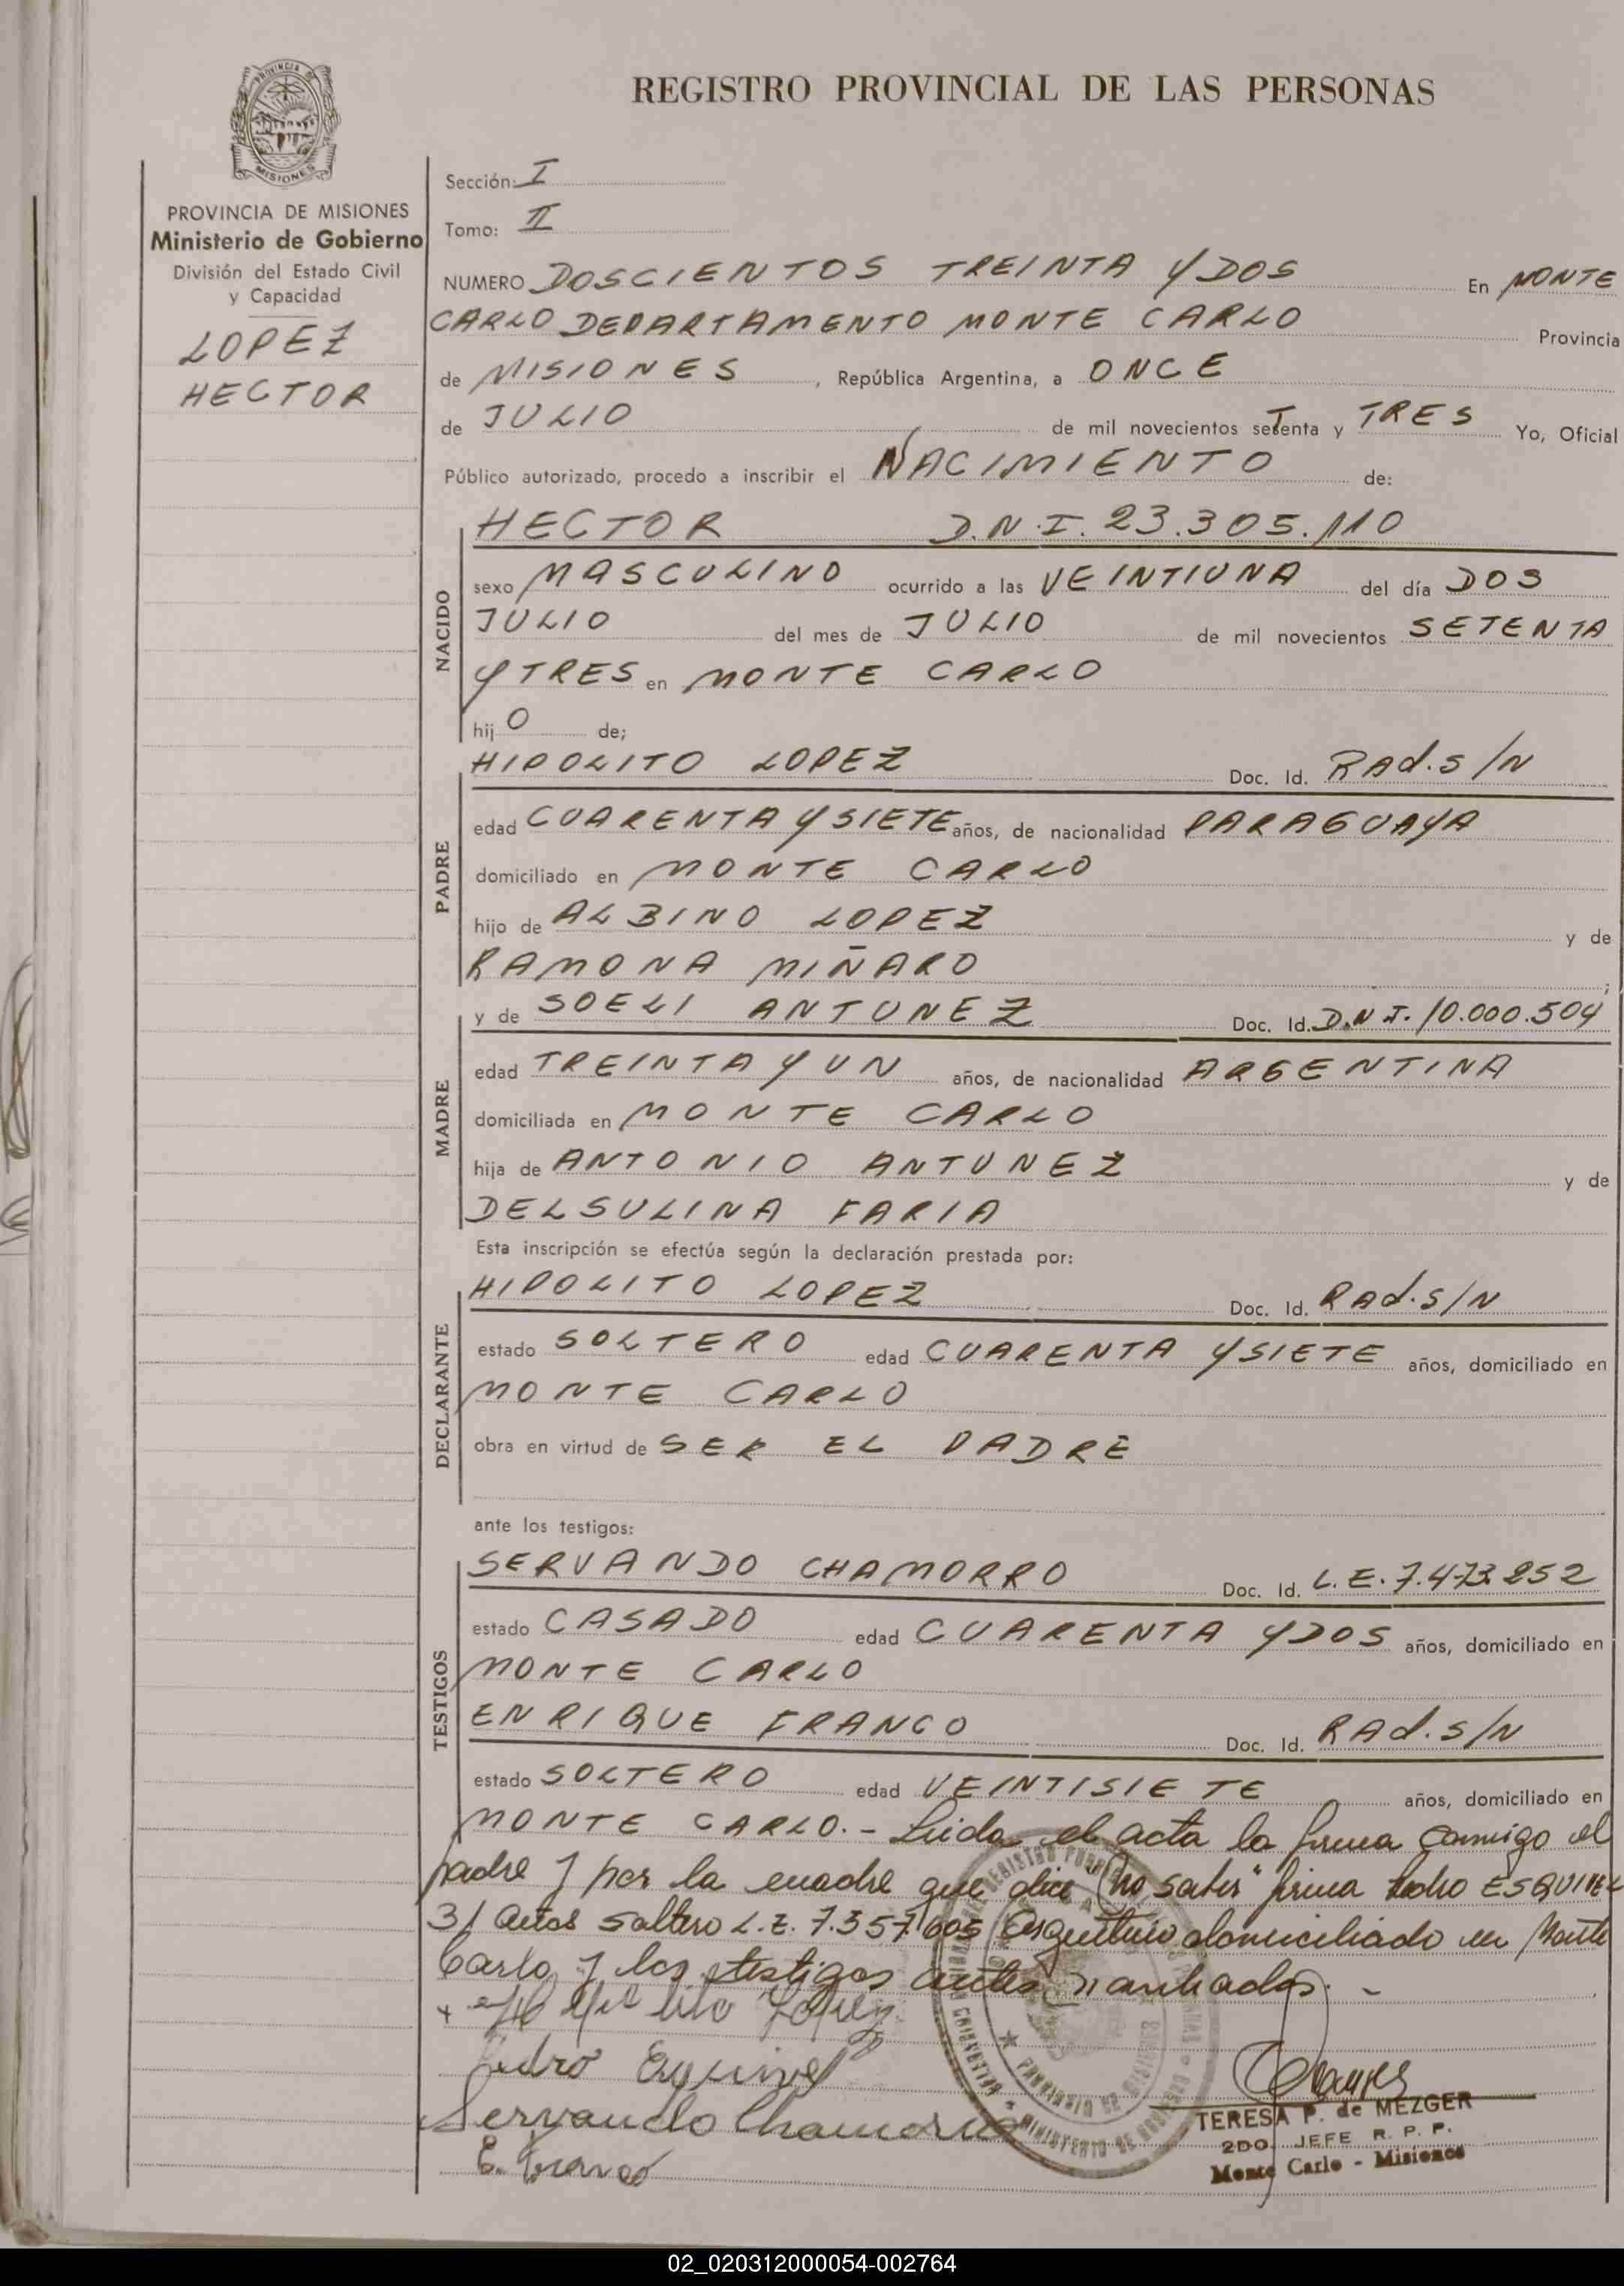 REGISTRO PROVINCIAL DE LAS PERSONAS
MISIONES
PROVINCIA DE MISIONES
Ministerio de Gobierno
División del Estado Civil
y Capacidad
LOPEZ
HECTOR
Sección: I
Tomo: II
NUMERO DOSCIENTOS TREINTA Y DOS En MONTE
CARLO DEPARTAMENTO MONTE CARLO Provincia
de MISIONES, República Argentina, a ONCE
de JULIO de mil novecientos setenta y TRES Yo, Oficial
Público autorizado, procedo a inscribir el NACIMIENTO de:
NACIDO
HECTOR D.N.I. 23.305.110
sexo MASCULINO ocurrido a las VEINTIUNA del día DOS
JULIO del mes de JULIO de mil novecientos SETENTA
Y TRES en MONTE CARLO
hij O de;
PADRE
HIPOLITO LOPEZ Doc. Id. RAd. S/N
edad CUARENTA Y SIETE años, de nacionalidad PARAGUAYA
domiciliado en MONTE CARLO
hijo de ALBINO LOPEZ y de
RAMONA MIÑARO ;
MADRE
y de SOELI ANTUNEZ Doc. Id. D.N.I. 10.000.504
edad TREINTA Y UN años, de nacionalidad ARGENTINA
domiciliada en MONTE CARLO
hija de ANTONIO ANTUNEZ y de
DELSULINA FARIA
Esta inscripción se efectúa según la declaración prestada por:
DECLARANTE
HIPOLITO LOPEZ Doc. Id. RAd. S/N
estado SOLTERO edad CUARENTA Y SIETE años, domiciliado en
MONTE CARLO
obra en virtud de SER EL PADRE
ante los testigos:
TESTIGOS
SERVANDO CHAMORRO Doc. Id. L.E. 7.473.252
estado CASADO edad CUARENTA Y DOS años, domiciliado en
MONTE CARLO
ENRIQUE FRANCO Doc. Id. RAd. S/N
estado SOLTERO edad VEINTISIETE años, domiciliado en
MONTE CARLO.- Leida el acta la firma conmigo el
padre y por la madre que dice "no saber" firma Pedro ESQUIVEL
31 años soltero L.E. 7.357.605 argentino domiciliado en Monte
Carlo y los testigos antes nombrados. -
Pedro Esquivel
Servando Chamorro
E. Franco
TERESA P. de MEZGER
2DO. JEFE R. P. P.
Monte Carlo - Misiones
02_020312000054-002764